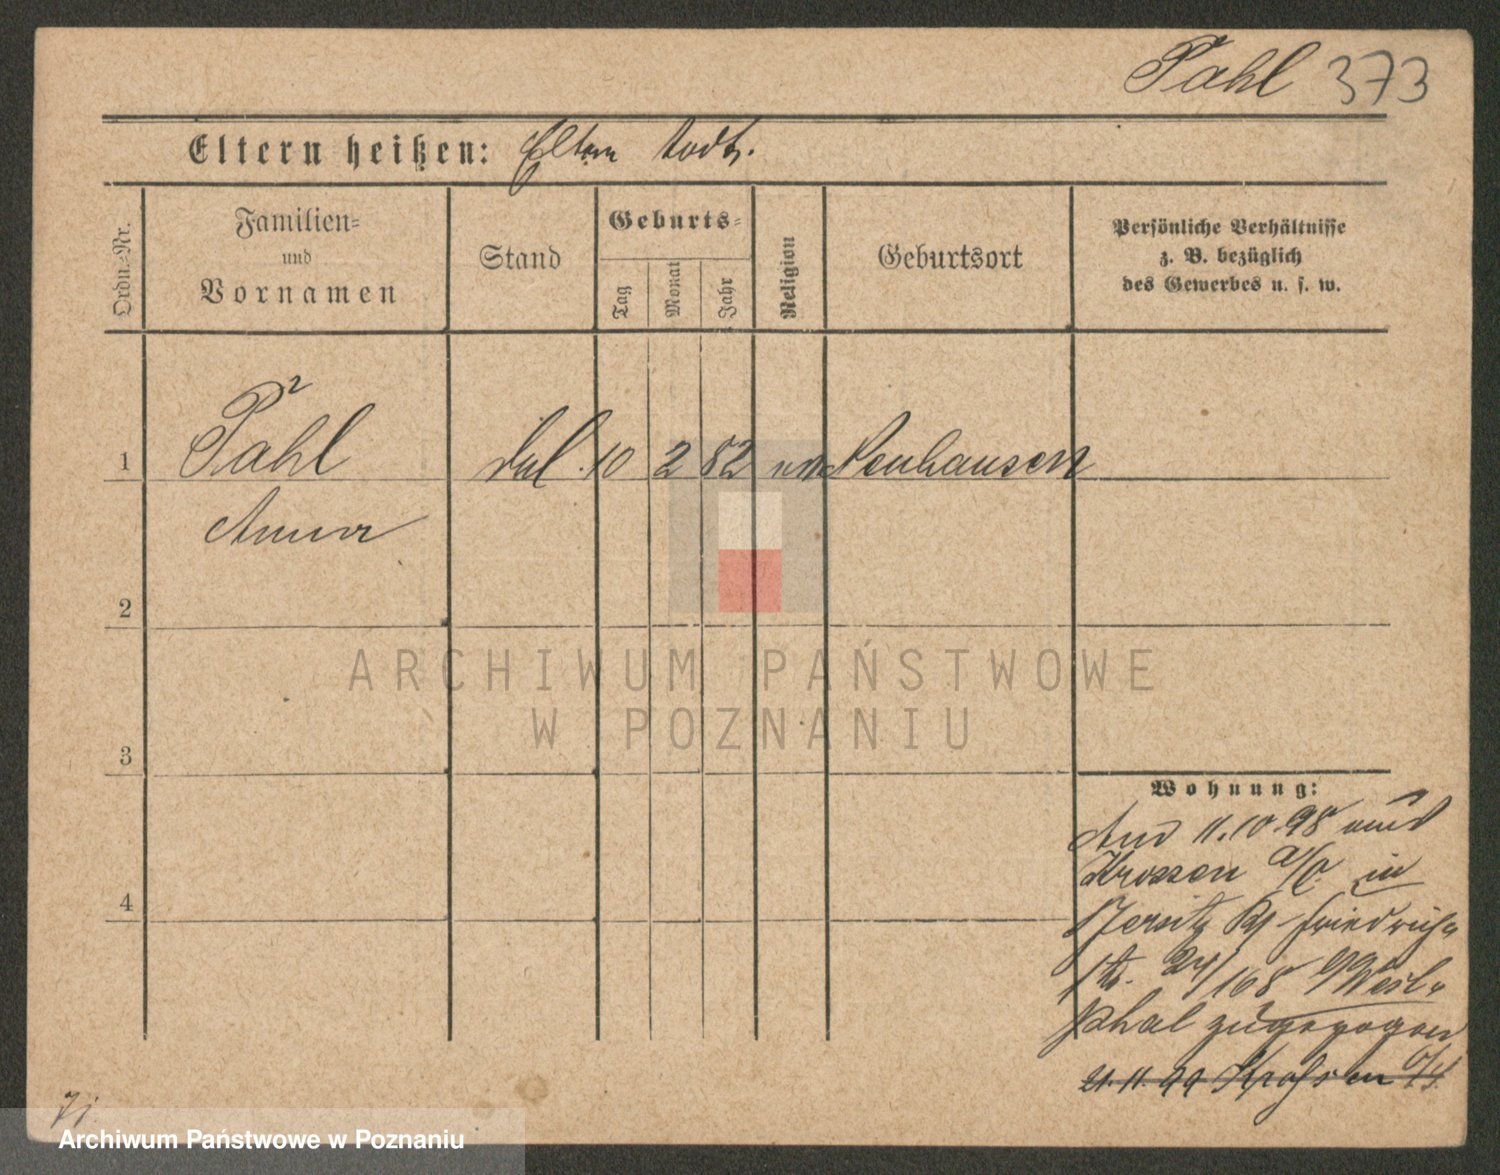 Pähl 373
Eltern heißen: Eltern todt.
Ordn.-Nr.
Familien-
und
Vornamen
Stand
Geburts-
Tag
Monat
Jahr
Religion
Geburtsort
Persönliche Verhältnisse
z. B. bezüglich
des Gewerbes u. s. w.
1 Pähl led. 10 2 82 Neuhausen
Anna
2
3
4
ARCHIWUM PAŃSTWOWE
W POZNANIU
Wohnung:
Am 11.10.98 aus
Krossen a/O. in
Jersitz Kf Friedrich-
str. 24/168 West-
phal zugezogen
21.11.99 Krossen a/O.
Archiwum Państwowe w Poznaniu